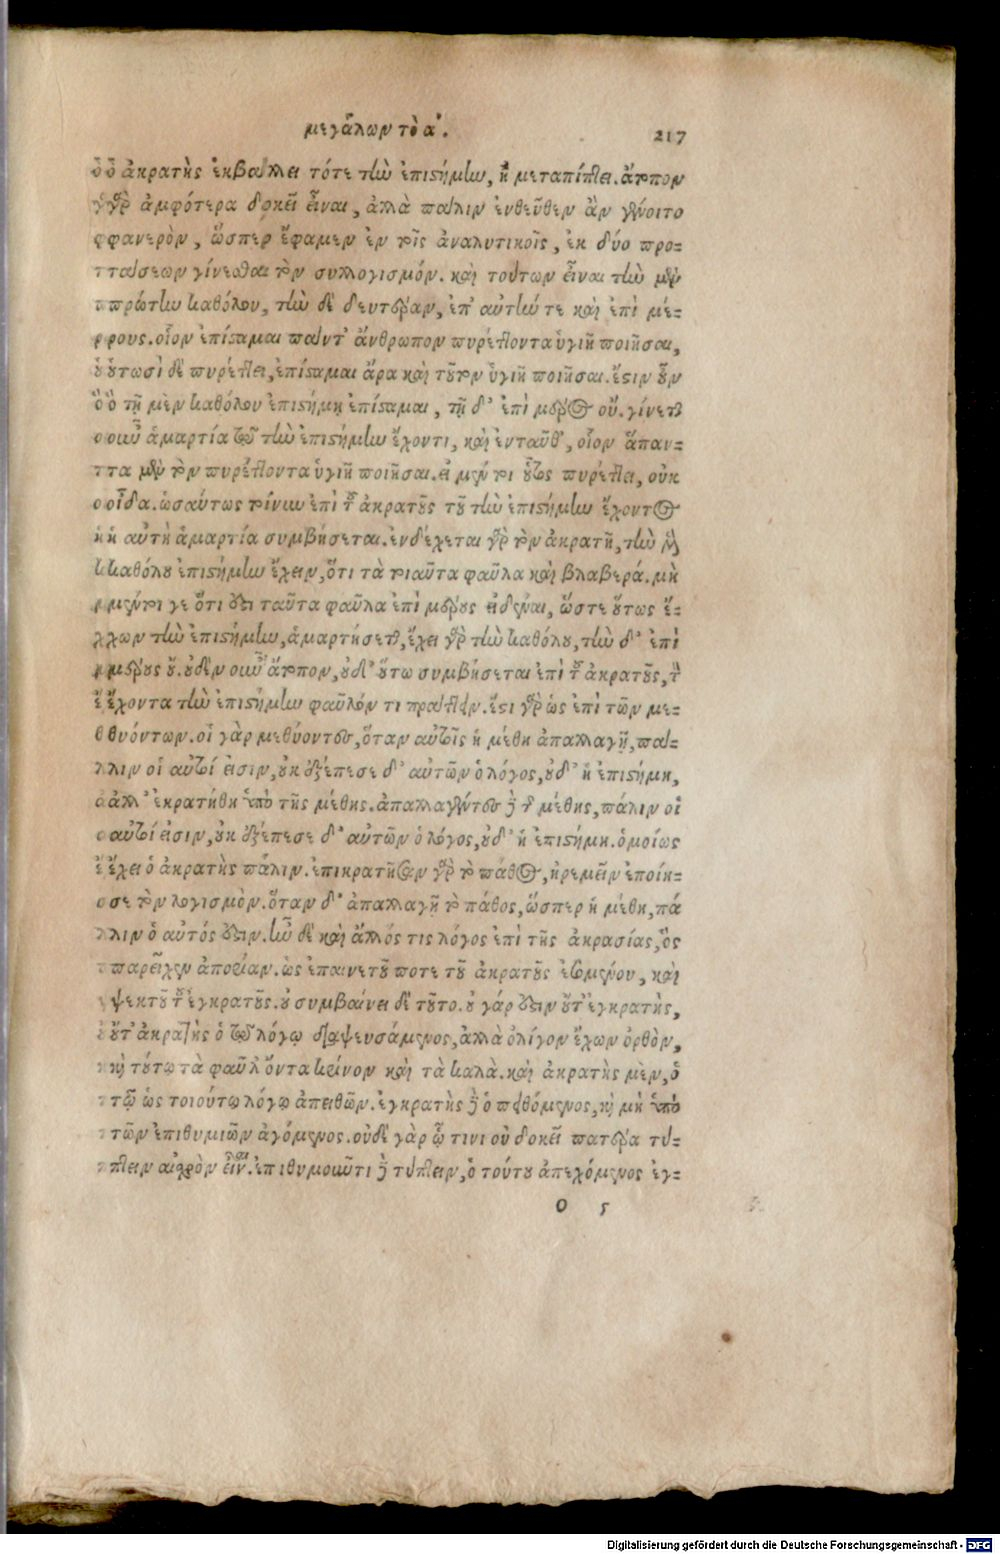 μεγάλων τὸ α΄. 217
ὁ ἀκρατὴς ἐκβάλλει τότε τὴν ἐπιστήμην, ἢ μεταπίπτει. ἄτοπον
γὰρ ἀμφότερα δοκεῖ εἶναι, ἀλλὰ πάλιν ἐνθεῦθεν ἂν γένοιτο
φανερὸν, ὥσπερ ἔφαμεν ἐν τοῖς ἀναλυτικοῖς, ἐκ δύο προ-
τάσεων γίνεσθαι τὸν συλλογισμόν. καὶ τούτων εἶναι τὴν μὲν
πρώτην καθόλου, τὴν δὲ δευτέραν, ἐπ' αὐτήν τε καὶ ἐπὶ μέ-
ρους. οἷον ἐπίσταμαι πάντ' ἄνθρωπον πυρέττοντα ὑγιῆ ποιῆσαι,
οὑτωσὶ δὲ πυρέττει, ἐπίσταμαι ἄρα καὶ τοῦτον ὑγιῆ ποιῆσαι. ἔστιν οὖν
ὃ τῇ μὲν καθόλου ἐπιστήμῃ ἐπίσταμαι, τῇ δ' ἐπὶ μέρος οὔ. γίνεται
οὖν ἁμαρτία τῷ τὴν ἐπιστήμην ἔχοντι, καὶ ἐνταῦθ', οἷον ἅπαν-
τα μὲν τὸν πυρέττοντα ὑγιῆ ποιῆσαι. εἰ μέντοι οὗτος πυρέττει, οὐκ
οἶδα. ὡσαύτως τοίνυν ἐπὶ τοῦ ἀκρατοῦς τοῦ τὴν ἐπιστήμην ἔχοντος
ἡ αὐτὴ ἁμαρτία συμβήσεται. ἐνδέχεται γὰρ τὸν ἀκρατῆ, τὴν μὲν
καθόλου ἐπιστήμην ἔχειν, ὅτι τὰ τοιαῦτα φαῦλα καὶ βλαβερά. μὴ
μέντοι γε ὅτι δεῖ ταῦτα φαῦλα ἐπὶ μέρους εἰδέναι, ὥστε οὕτως ἔ-
χων τὴν ἐπιστήμην, ἁμαρτήσεται, ἔχει γὰρ τὴν καθόλου, τὴν δ' ἐπὶ
μέρους οὔ. οὐδὲν οὖν ἄτοπον, οὐδ' οὕτω συμβήσεται ἐπὶ τοῦ ἀκρατοῦς, τὸν
ἔχοντα τὴν ἐπιστήμην φαῦλόν τι πράττειν. ἔστι γὰρ ὡς ἐπὶ τῶν με-
θυόντων. οἱ γὰρ μεθύοντες, ὅταν αὐτοῖς ἡ μέθη ἀπαλλαγῇ, πά-
λιν οἱ αὐτοί εἰσιν, οὐκ ἐξέπεσε δ' αὐτῶν ὁ λόγος, οὐδ' ἡ ἐπιστήμη,
ἀλλ' ἐκρατήθη ὑπὸ τῆς μέθης. ἀπαλλαγέντες δὲ τῆς μέθης, πάλιν οἱ
αὐτοί εἰσιν, οὐκ ἐξέπεσε δ' αὐτῶν ὁ λόγος, οὐδ' ἡ ἐπιστήμη. ὁμοίως
ἔχει ὁ ἀκρατὴς πάλιν. ἐπικρατῆσαν γὰρ τὸ πάθος, ἠρεμεῖν ἐποίη-
σε τὸν λογισμὸν. ὅταν δ' ἀπαλλαγῇ τὸ πάθος, ὥσπερ ἡ μέθη, πά
λιν ὁ αὐτός ἐστιν. ἦν δὲ καὶ ἄλλός τις λόγος ἐπὶ τῆς ἀκρασίας, ὃς
παρεῖχεν ἀπορίαν. ὡς ἐπαινετοῦ ποτε τοῦ ἀκρατοῦς ἐσομένου, καὶ
ψεκτοῦ τοῦ ἐγκρατοῦς. οὐ συμβαίνει δὲ τοῦτο. οὐ γάρ ἐστιν οὔτ' ἐγκρατὴς,
οὔτ' ἀκρατὴς ὁ τῷ λόγῳ διαψευσάμενος, ἀλλὰ ὁ λόγον ἔχων ὀρθὸν,
καὶ τούτῳ τὰ φαῦλ' ὄντα κρίνον καὶ τὰ καλὰ. καὶ ἀκρατὴς μὲν, ὁ
τῷ ὡς τοιούτῳ λόγῳ ἀπειθῶν. ἐγκρατὴς δὲ ὁ πειθόμενος, καὶ μὴ ὑπὸ
τῶν ἐπιθυμιῶν ἀγόμενος. οὐδὲ γὰρ ᾧ τινι οὐ δοκεῖ πατέρα τύ-
πτειν αἰσχρὸν εἶναι. ἐπιθυμοῦντι δὲ τύπτειν, ὁ τούτου ἀπεχόμενος ἐγ-
O 5
Digitalisierung gefördert durch die Deutsche Forschungsgemeinschaft - DFG